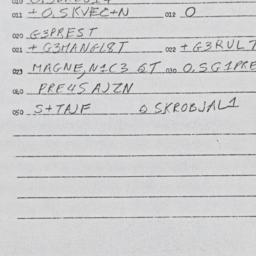 011 + O.SKVEC+N 012 O
020 G3PREST
021 + G3MANGL8T 022 + G3RUL7
023 MAGNE,N1C3 QT 030 O.SG1PRE
040 PRE4SAJZN
050 S+TAJF O SKROBJAL1